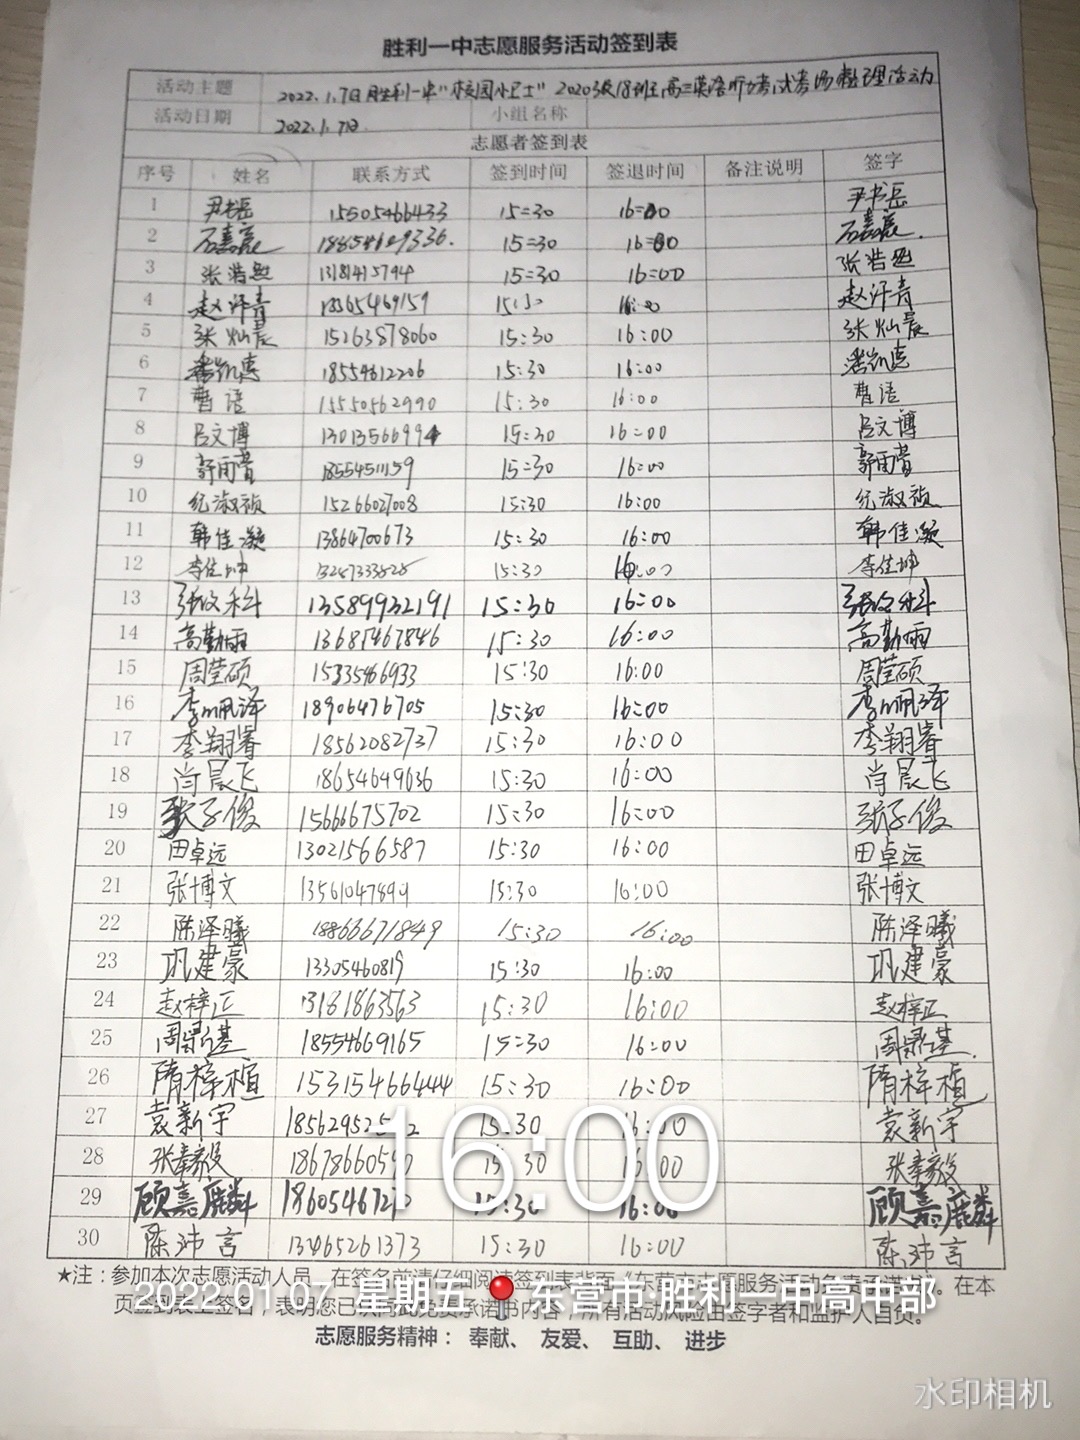 胜利一中志愿服务活动签到表
活动主题 2022.1.7日胜利一中"校园小卫士"2020级18班高三英语听力考试考场整理活动
活动日期 2022.1.7日 小组名称
志愿者签到表
序号 姓名 联系方式 签到时间 签退时间 备注说明 签字
1 尹书岳 15505466433 15:30 16:00 尹书岳
2 15:30 16:00
3 张浩 15:30 16:00 张浩
4 赵汗青 18365469159 15:30 16:00 赵汗青
5 张灿晨 15263878060 15:30 16:00 张灿晨
6 潘凯惠 18554612206 15:30 16:00 潘凯惠
7 曹语 15550562990 15:30 16:00 曹语
8 吕文博 13013566994 15:30 16:00 吕文博
9 郭雨菅 18554511159 15:30 16:00 郭雨菅
10 纪淑祯 15266027008 15:30 16:00 纪淑祯
11 韩佳凝 13864700673 15:30 16:00 韩佳凝
12 李佳坤 15:30 16:00 李佳坤
13 张文科 13589932191 15:30 16:00 张文科
14 高勤雨 13687467846 15:30 16:00 高勤雨
15 周莹硕 15335466933 15:30 16:00 周莹硕
16 李佩泽 18906476705 15:30 16:00 李佩泽
17 李翔睿 18562082737 15:30 16:00 李翔睿
18 肖晨飞 18654649636 15:30 16:00 肖晨飞
19 张子俊 15666675702 15:30 16:00 张子俊
20 田卓远 13021566587 15:30 16:00 田卓远
21 张博文 13561047899 15:30 16:00 张博文
22 陈泽曦 18866671849 15:30 16:00 陈泽曦
23 巩建豪 13305460819 15:30 16:00 巩建豪
24 赵梓正 13181863563 15:30 16:00 赵梓正
25 周鼎基 18554669165 15:30 16:00 周鼎基
26 隋梓植 15315466444 15:30 16:00 隋梓植
27 袁新宇 15:30 16:00 袁新宇
28 张奉毅 15:30 16:00 张奉毅
29 顾嘉麟 15:30 16:00 顾嘉麟
30 陈沛言 13465261373 15:30 16:00 陈沛言
16:00
★注：参加本次志愿活动人员，在签名前请仔细阅读签到表背面《东营市志愿服务活动免责承诺书》。在本
页签到表上签名，表明您已认同此免责承诺书内容，所有活动风险由签字者和监护人自负。
2022.01.07 星期五 东营市·胜利一中高中部
志愿服务精神：奉献、友爱、互助、进步
水印相机